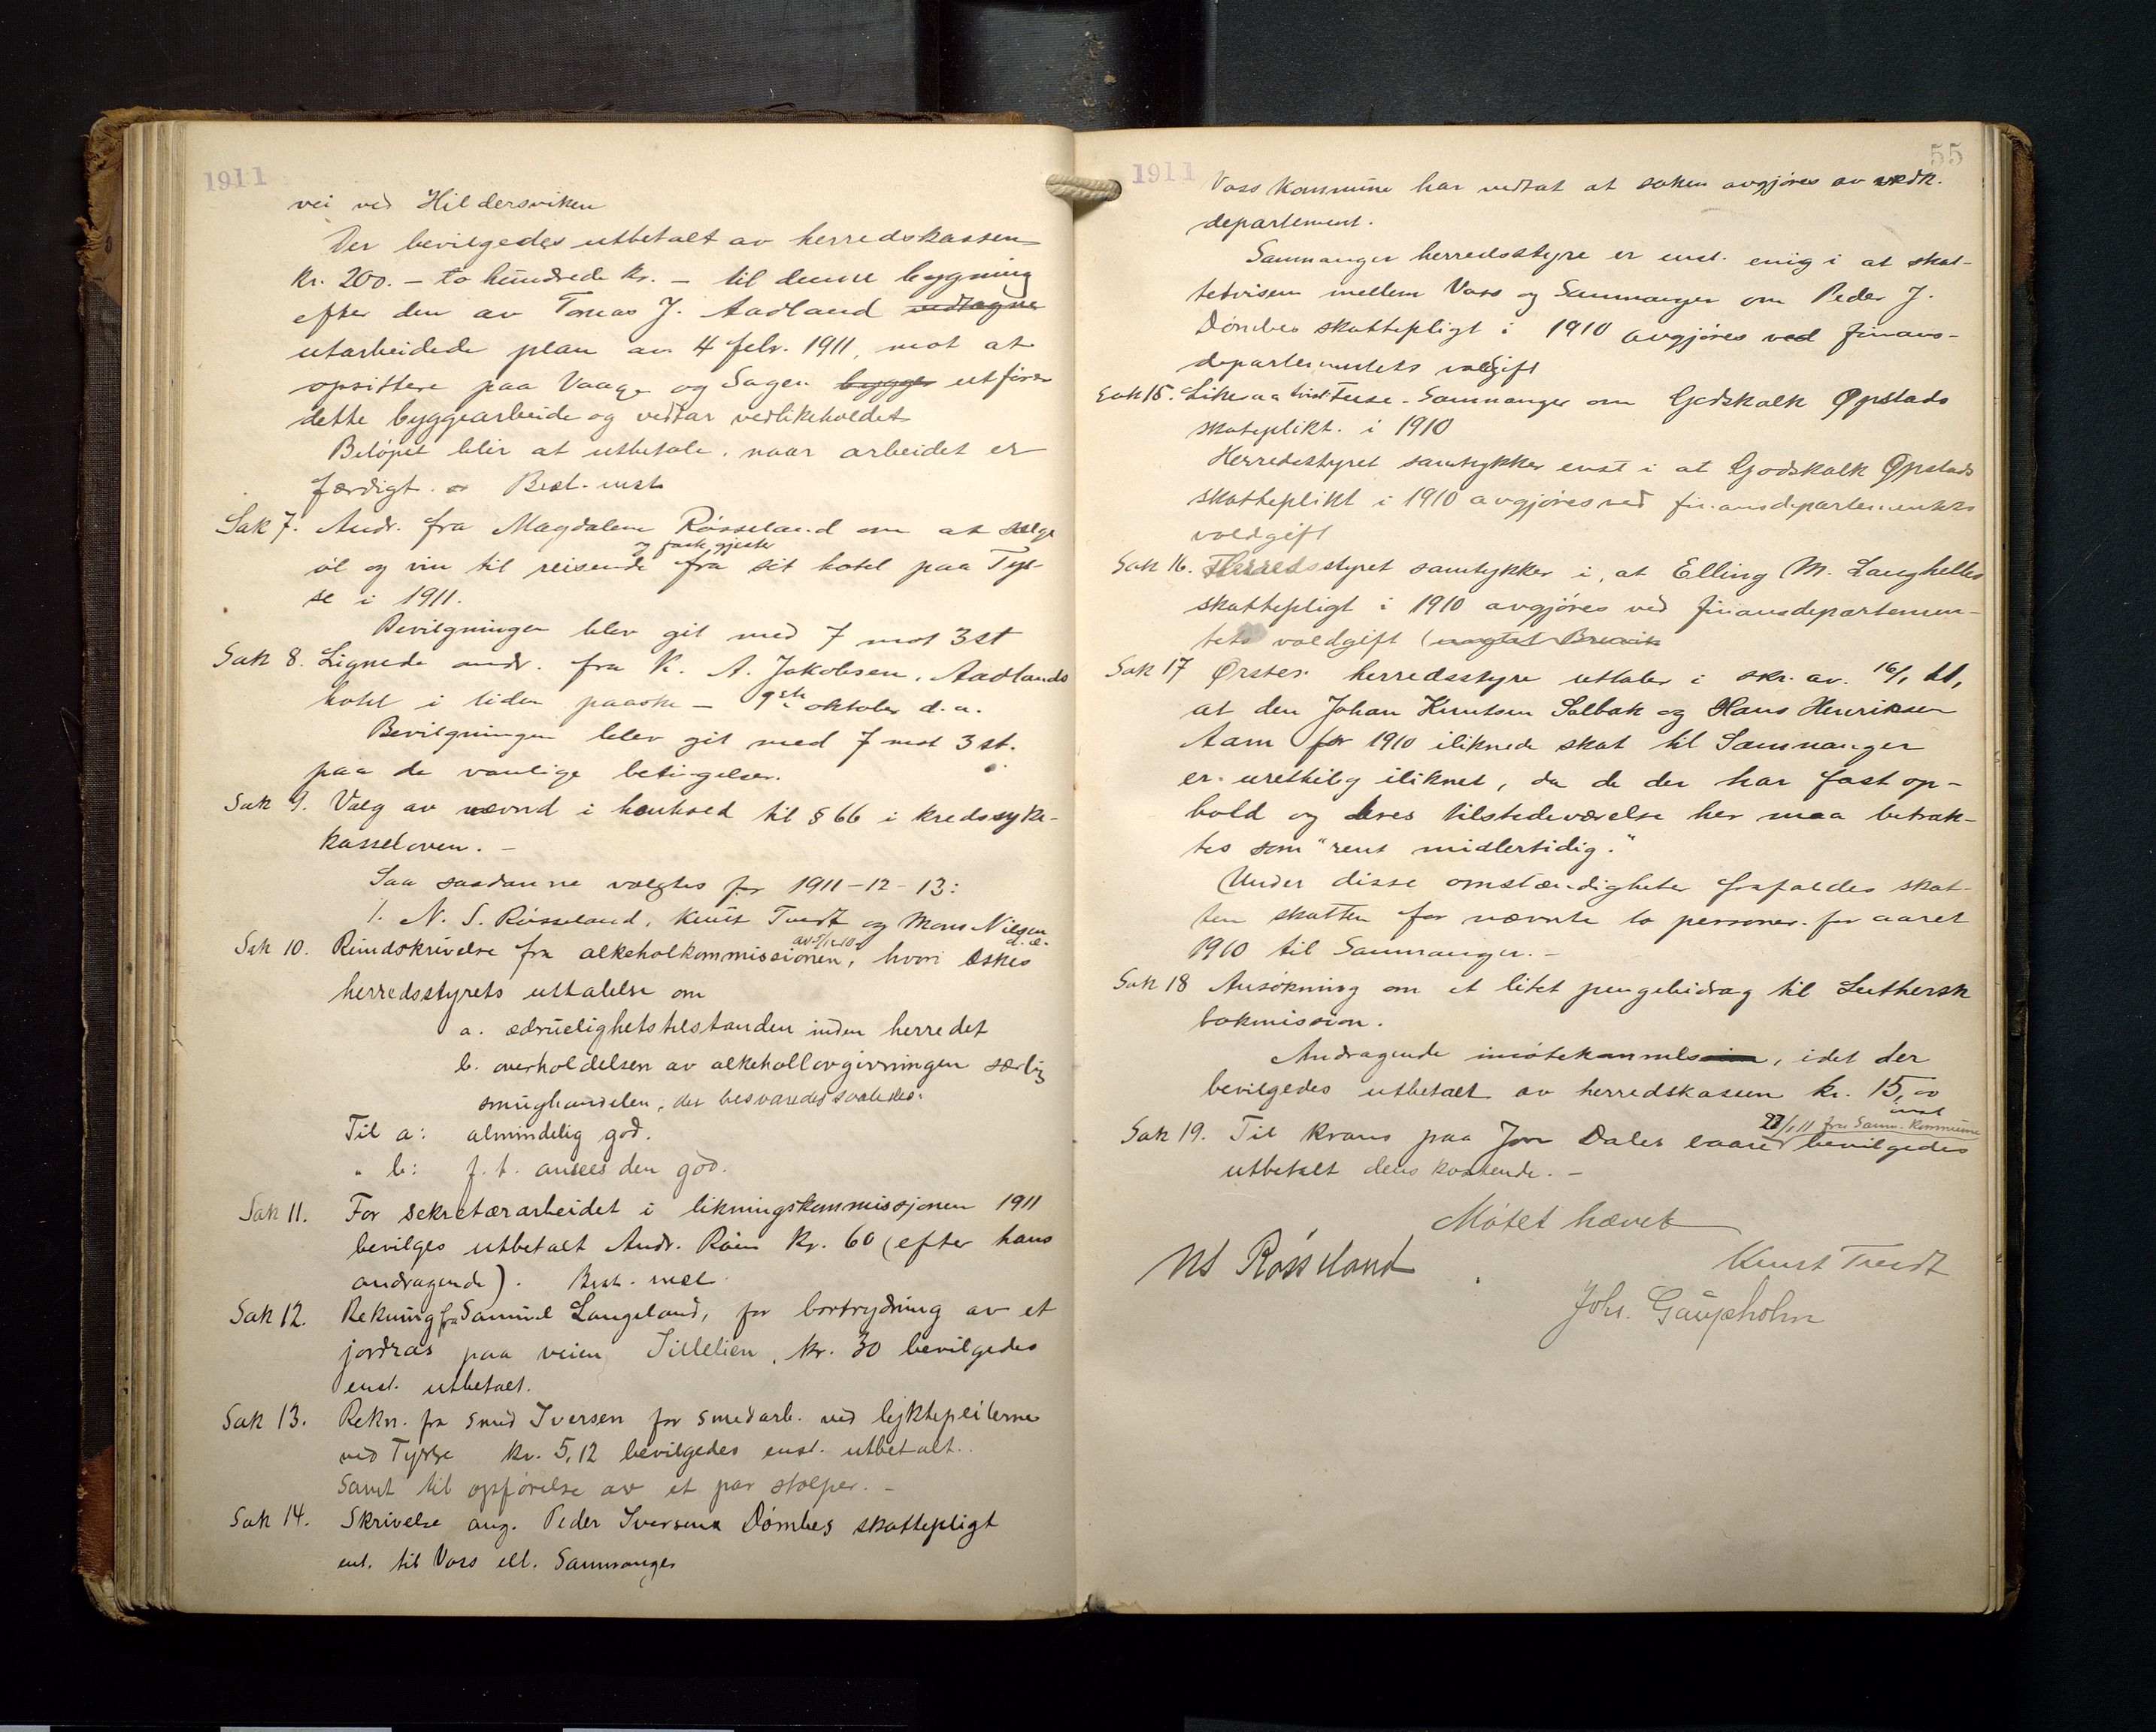 1911
vei ved Hildersviken
Der bevilgedes utbetalt av herredskassen
kr. 200.- to hundrede kr. - til denne bygning
efter den av Tomas J. Aadland vedtagne
utarbeidede plan av 4 febr. 1911, mot at
opsittere paa Vaage og Sagen bygger utfører
dette byggearbeide og vedtar vedlikeholdet
Beløpet blir at utbetale, naar arbeidet er
færdigt. Besl. enst.
Sak 7. Andr. fra Magdalene Røsseland om at sælge
og faste gjester
øl og vin til reisende fra sit hotel paa Tys-
se i 1911.
Bevilgningen blev git med 7 mot 3 st
Sak 8. Lignede andr. fra K. A. Jakobsen, Aadlands
hotel i tiden paaske - 9de oktober d.a.
Bevilgningen blev git med 7 mot 3 st.
paa de vanlige betingelser.
Sak 9. Valg av nævnd i henhold til § 66 i kredssyke-
kasseloven. -
Saa saadanne valgtes for 1911-12-13:
N. S. Røsseland, Knut Tvedt og Mons Nilsen
d.æ.
Sak 10. Rundskrivelse fra alkoholkommissionen, hvori æskes
herredsstyrets uttalelse om
a. ædruelighetstilstanden inden herredet
b. overholdelsen av alkohollovgivningen særlig
smughandelen, der besvaredes saaledes:
Til a: almindelig god.
" b: f. t. ansees den god.
Sak 11. For sekretærarbeidet i likningskommissjonen 1911
bevilges utbetalt Andr. Røen kr. 60 (efter hans
andragende). Besl. enst.
Sak 12. Rekning fra Samuel Langeland, for bortrydning av et
jordras paa veien Tillelien, kr. 30 bevilgedes
enst. utbetalt.
Sak 13. Rekn. fra smed Iversen for smedarb. ved lyktepælerne
ved Tysse kr. 5,12 bevilgedes enst. utbetalt.
Samt til opførelse av et par stolper. -
Sak 14. Skrivelse ang. Peder Iversens Dømbes skattepligt
ent. til Voss ell. Samnanger
1911
55
Voss kommune har vedtat at saken avgjøres av vedk.
departement.
Samnanger herredsstyre er enst. enig i at skat-
tetvisen mellem Voss og Samnanger om Peder J.
Dømbes skattepligt i 1910 avgjøres ved finans-
departementets voldgift
Sak 15. Likesaa tvist Fuse - Samnanger om Godskalk Øpstads
skatteplikt i 1910
Herredsstyret samtykker enst i at Godskalk Øpstads
skatteplikt i 1910 avgjøres ved finansdepartementets
voldgift
Sak 16. Herredsstyret samtykker i, at Elling M. Langhelles
skattepligt i 1910 avgjøres ved finansdepartemen-
tets voldgift
Sak 17 Ørsten herredsstyre uttaler i skr. av 16/1 11,
at den Johan Knutsen Solbak og Hans Henriksen
Aam for 1910 iliknede skat til Samnanger
er urettelig iliknet, da de der har fast op-
hold og deres tilstedeværelse her maa betrak-
tes som "rent midlertidig."
Under disse omstændigheter frafaldes skat-
ten skatten for nævnte to personer for aaret
1910 til Samnanger. -
Sak 18 Ansøkning om et litet pengebidrag til Luthersk
bokmission.
Andragende imøtekommes, idet der
bevilgedes utbetalt av herredskassen kr. 15,00
enst
22/1 11 fra Samn. kommune
Sak 19. Til krans paa Jon Dales baare bevilgedes
utbetalt dens kostende. -
Møtet hævet
NS Røsseland
Knut Tvedt
Johs. Gaupholm